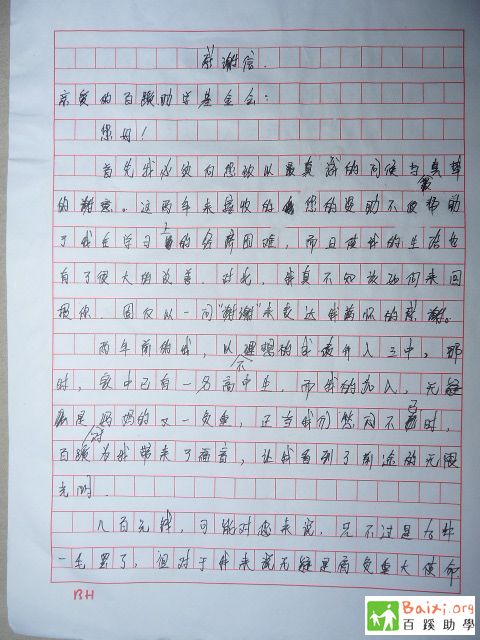 感谢信.
亲爱的百蹊助学基金会:
您好!
首先我必须向您致以最真诚的问候与真挚
的谢意。这两年来接收的您的援助不仅帮助
了我在学习上的经济困难,而且使我的生活也
有了很大的改善.对此,我真不知该如何来回
报你.因仅以一问“谢谢”来表达我满怀的感谢。
两年前的我,以理想的成绩升入三中,那
时,家中已有一名高中生,而我的加入,无疑
是妈妈的又一负重,正当我们愁闷不已时,
百蹊为我带来了福音,让我看到了前途的无限
光明.
几百元钱,可能对您来说,只不过是九牛
一毛罢了,但对于我来说无疑是肩负重大使命
BH
Baixi.org
百蹊助學